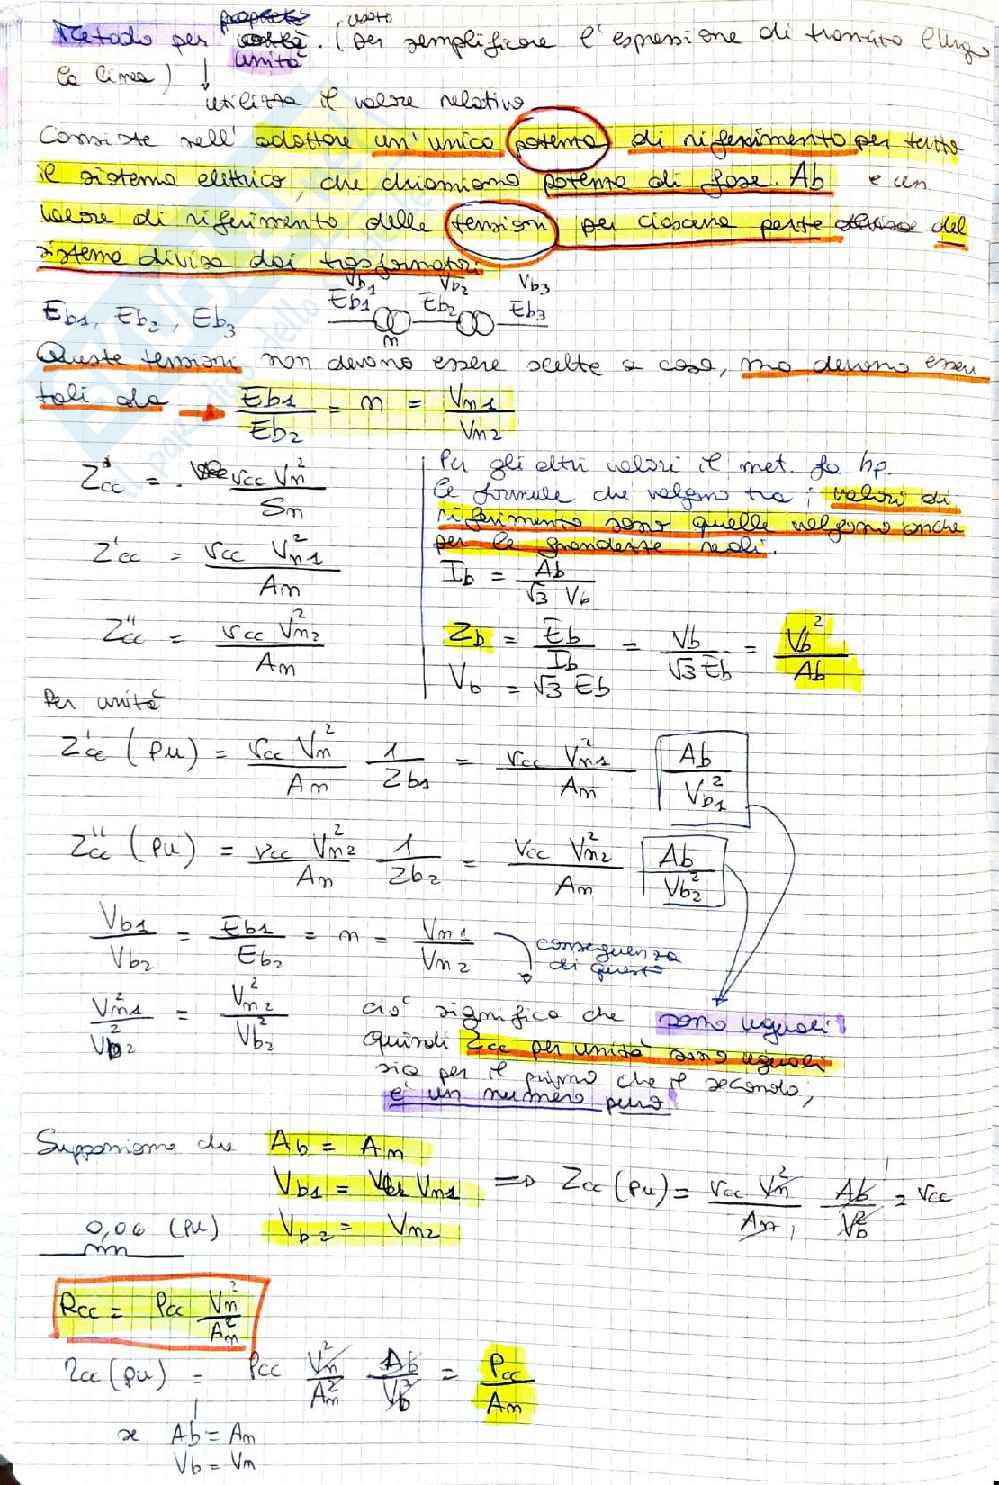 Metodo per unità. (usato per semplificare l'espressione di transito lungo
la linea)
utilizza il valore relativo
Consiste nell'adottare un'unica potenza di riferimento per tutto
il sistema elettrico, che chiamiamo potenza di base. Ab e un
valore di riferimento delle tensioni per ciascuna parte del
sistema divisa dai trasformatori
Vb1 Vb2 Vb3
Eb1, Eb2, Eb3 Eb1 Eb2 Eb3
m
Queste tensioni non devono essere scelte a caso, ma devono essere
tali da → Eb1/Eb2 = n = Vn1/Vn2
Z'cc = vcc Vn²/Sn
Z'cc = vcc Vn1²/An
Z''cc = vcc Vn2²/An
Per gli altri valori il met. fa hp.
le formule che valgono tra i valori di
riferimento sono quelle valgono anche
per le grandezze reali.
Ib = Ab/√3 Vb
Zb = Eb/Ib = Vb/√3 Eb = Vb²/Ab
Vb = √3 Eb
Per unità
Z'cc (pu) = vcc Vn²/An 1/Zb1 = vcc Vn1²/An Ab/Vb1²
Z''cc (pu) = vcc Vn2²/An 1/Zb2 = vcc Vn2²/An Ab/Vb2²
Vb1/Vb2 = Eb1/Eb2 = n = Vn1/Vn2
conseguenza
di questo
Vn1²/Vb2² = Vn2²/Vb2²
ciò significa che sono uguali
quindi Zcc per unità sono uguali
sia per il primo che il secondo,
è un numero puro
Supponiamo che Ab = An
Vb1 = Vn1 ⇒ Zcc (pu) = vcc Vn²/An Ab/Vb² = vcc
0,06 (pu) Vb2 = Vn2
Rcc = Pcc Vn²/An²
Zcc (pu) = Pcc Vn²/An² Ab/Vb² = Pcc/An
se Ab = An
Vb = Vn